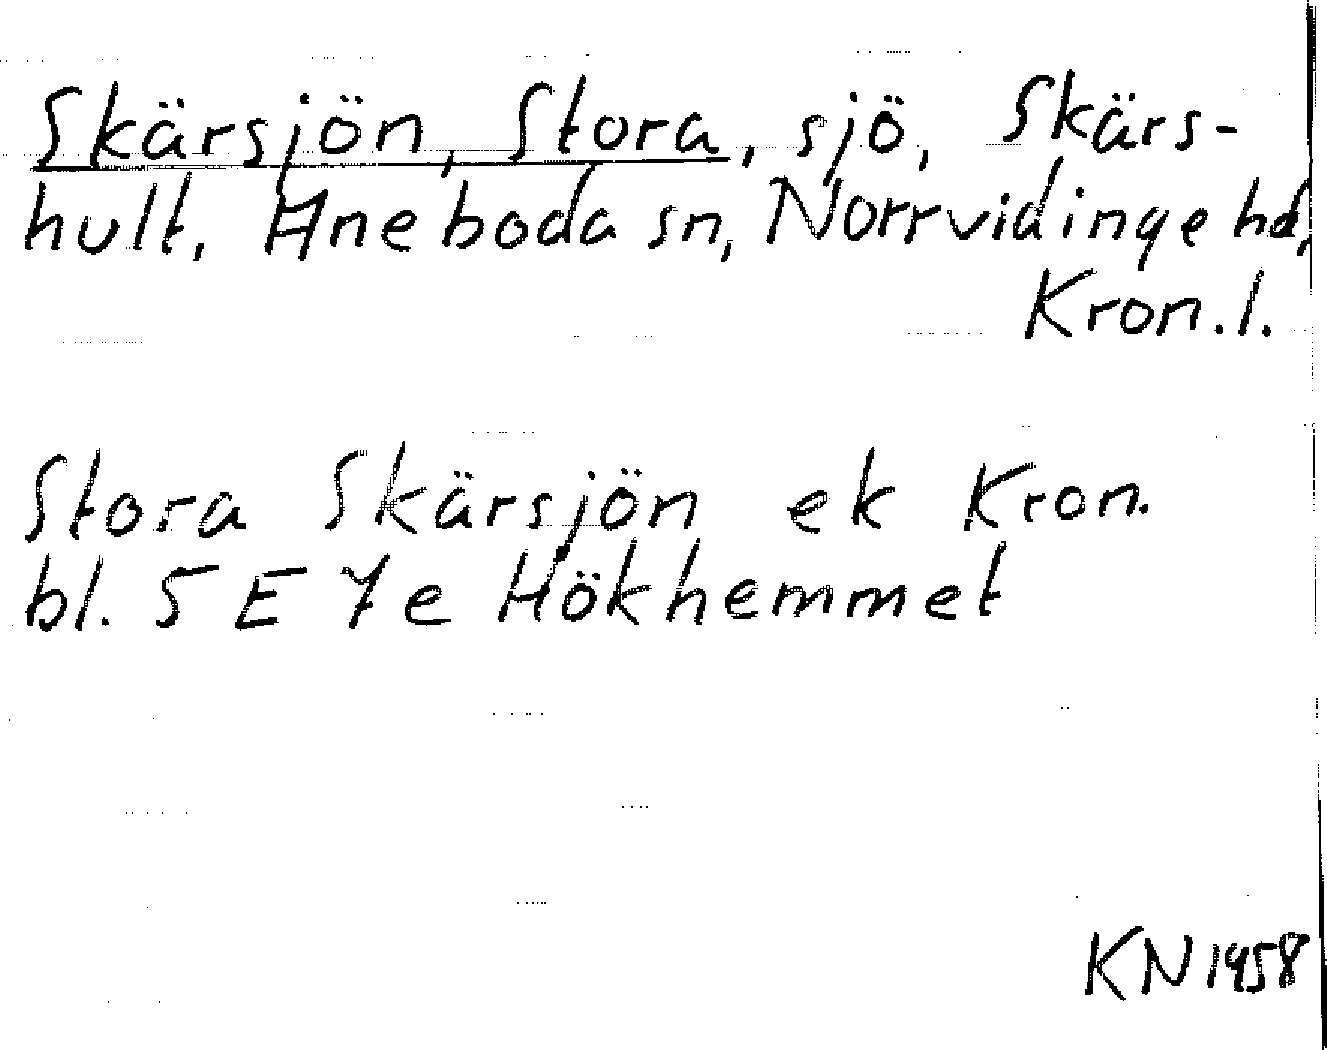 Skärsjön, Stora, sjö, Skärs-
hult, Aneboda sn, Norrvidinge hd,
Kron.l.
Stora Skärsjön ek Kron.
bl. 5 E 7e Hökhemmet
KN 1958